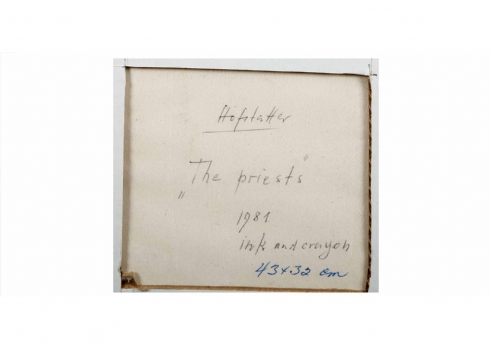 Hofstätter
„The priests"
1981
ink and crayon
43×32 cm